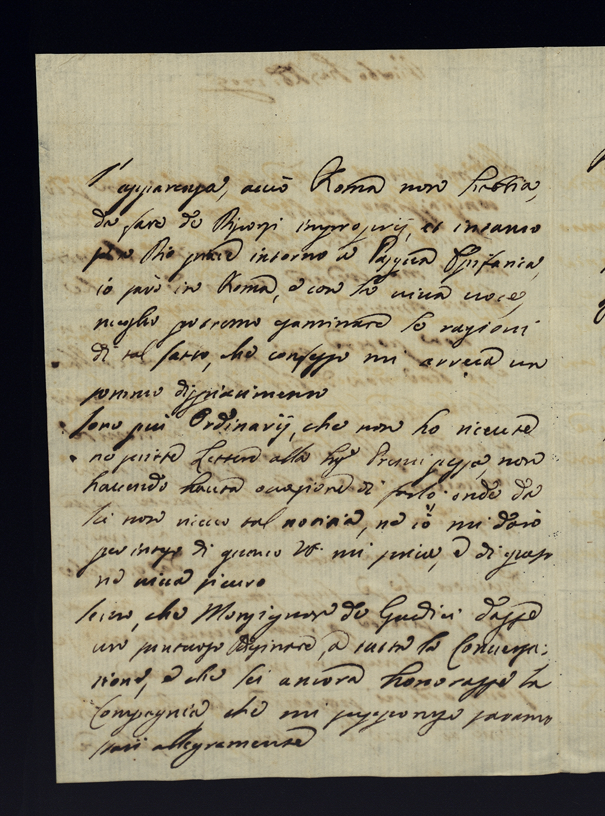 l'apparenza, acciò Roma non habbia,
da fare de Discorsi improprij, et intanto
se a Dio piace intorno a Pasqua Epifania,
io sarò in Roma, e con la viva voce,
meglio potremo esaminare le ragioni
di tal fatto, che confesso mi arreca un
sommo dispiacimento
Sono più Ordinarij, che non ho ricevute
ne scritte Lettere alla Sig.ª Principessa, non
havendo havuta occasione di farlo onde da
lei non ricevo tal notizia, ne io mi darò
per inteso di quanto VS mi scrive, e di questo
ne viva sicuro
Sento, che Monsignor de Giudici dasse
un sontuoso Desinare, a tutta la Conversa-
tione, e che lei ancora honorasse la
Compagnia che mi suppongo saranno
stati allegramente